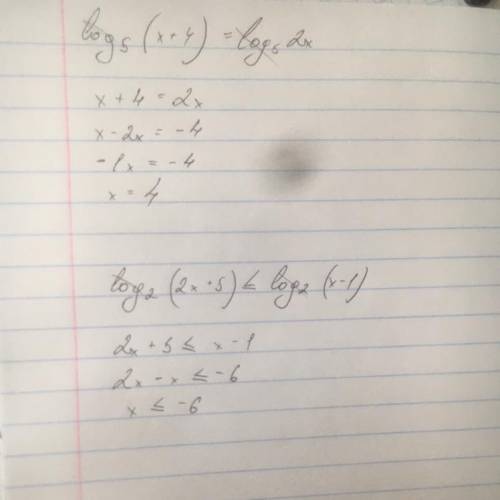 log₅ (x + 4) = log₅ 2x
x + 4 = 2x
x - 2x = -4
-1x = -4
x = 4
log₂ (2x + 5) ≤ log₂ (x - 1)
2x + 5 ≤ x - 1
2x - x ≤ -6
x ≤ -6